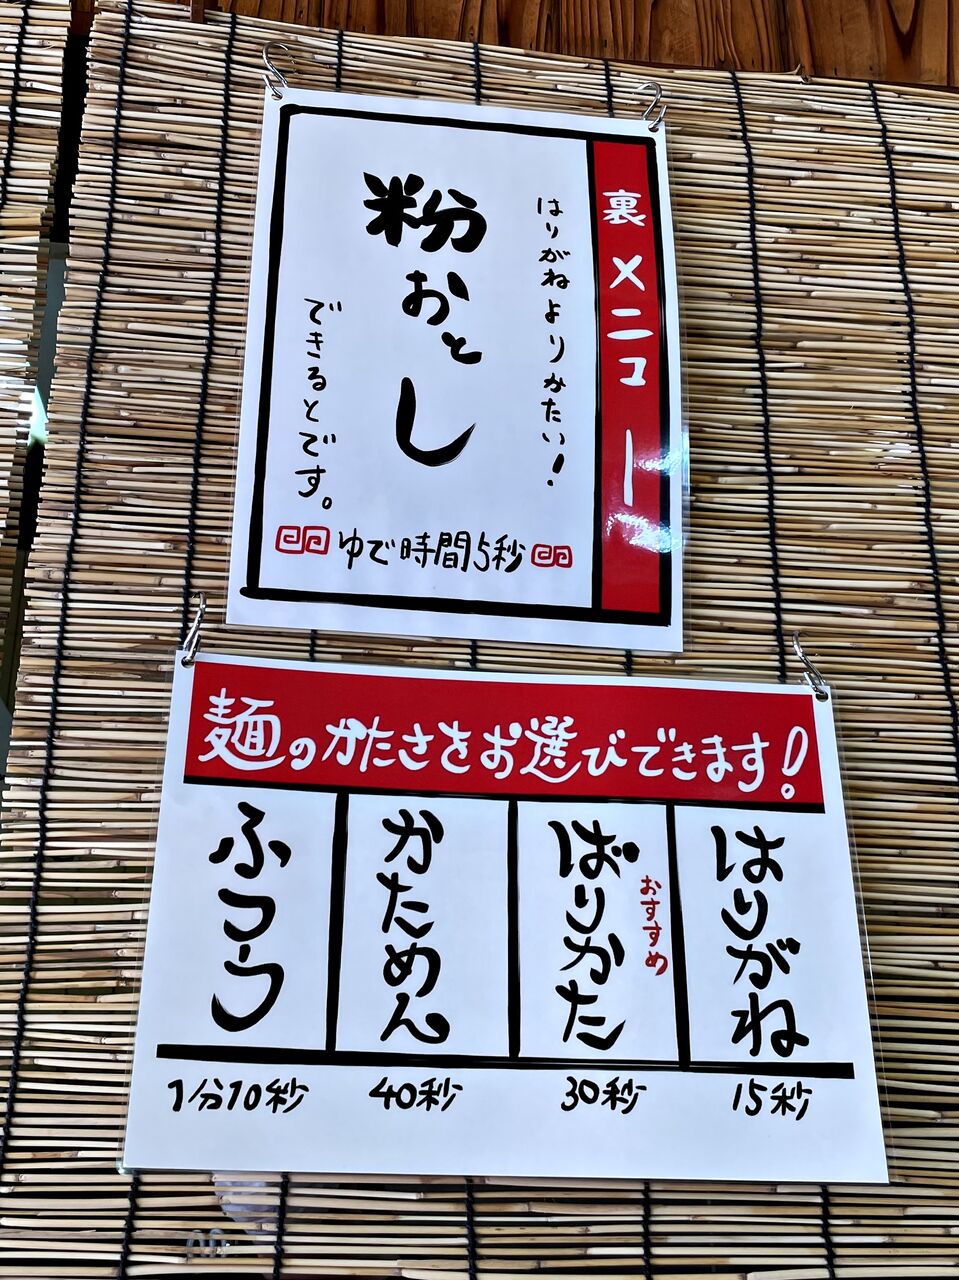 裏メニュー
はりがねよりかたい!
粉おとし
できるとです。
ゆで時間5秒
麺のかたさをお選びできます!
はりがね
15秒
おすすめ
ばりかた
30秒
かためん
40秒
ふつう
1分10秒